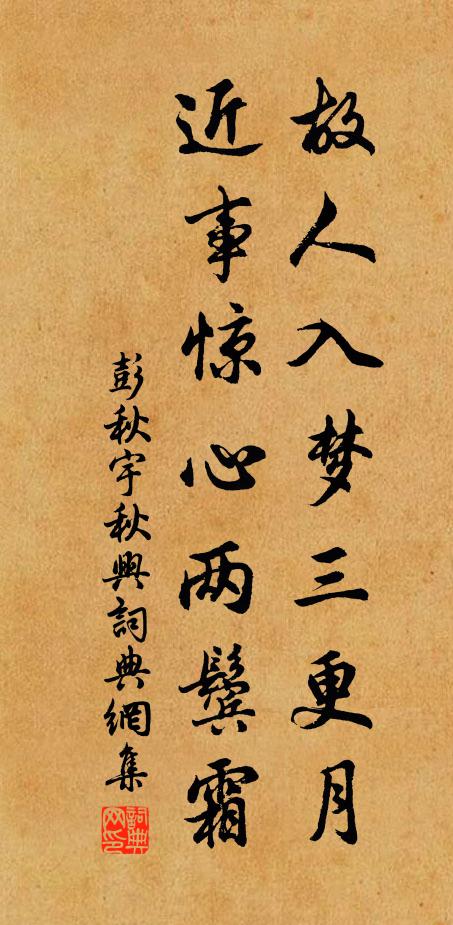 故人入梦三更月
近事惊心两鬓霜
彭秋宇秋興詞典網集
詞典网印